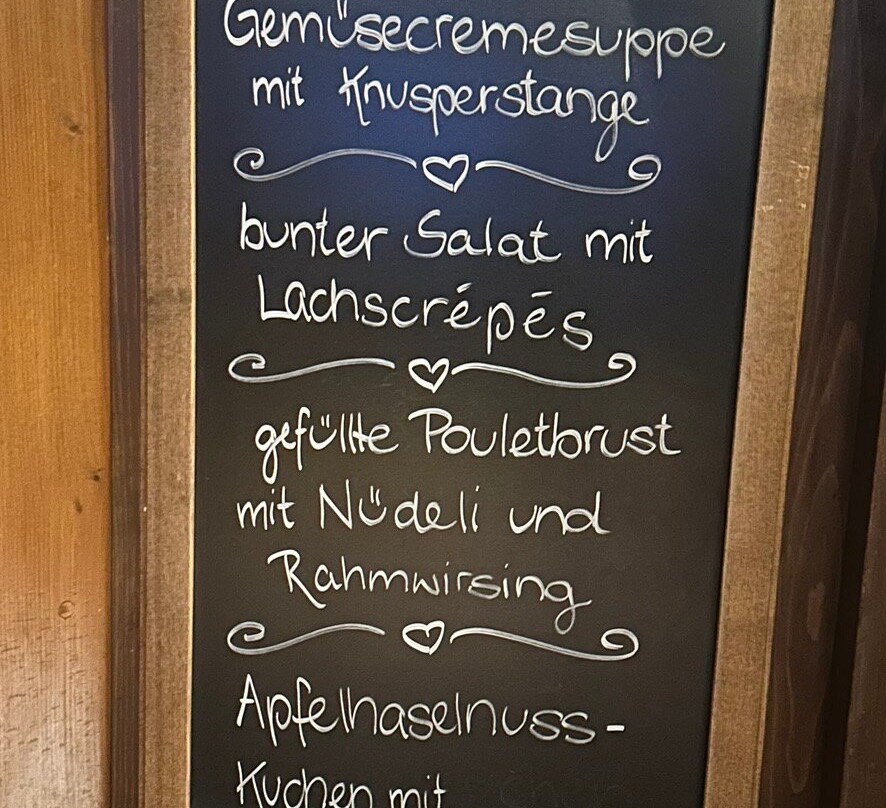 Gemüsecremesuppe
mit Knusperstange
bunter Salat mit
Lachscrépēs
gefüllte Pouletbrust
mit Nüdeli und
Rahmwirsing
Apfelhaselnuss-
Kuchen mit